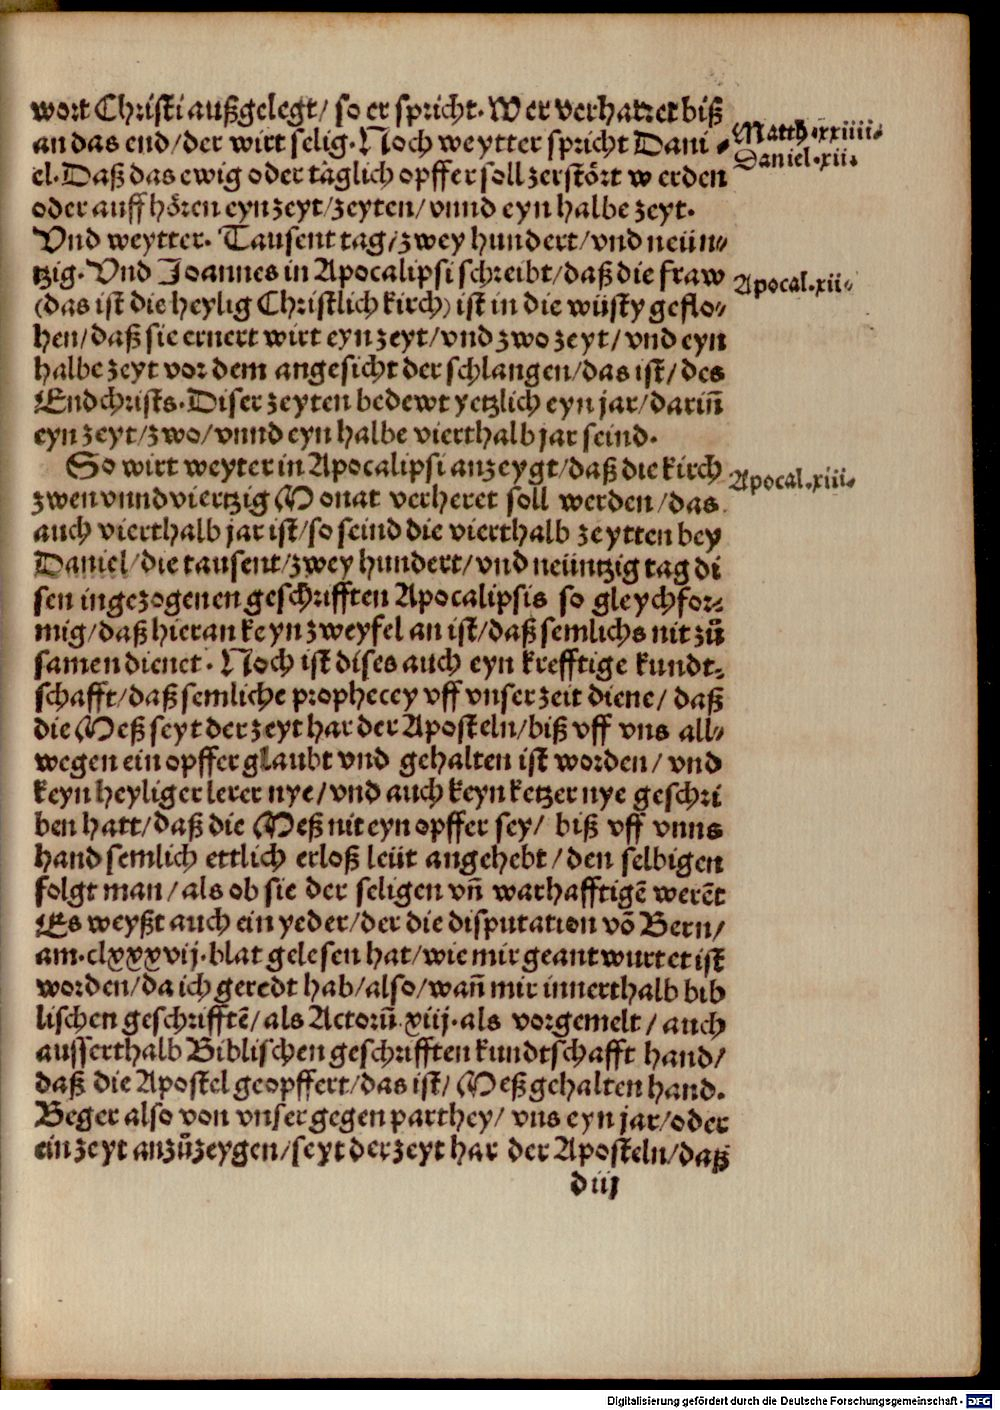 wort Christi außgelegt/ so er spricht. Wer verharret biß
an das end/der wirt selig. Noch weytter spricht Dani⸗
el. Daß das ewig oder täglich opffer soll zerstört werden
oder auffhören eyn zeyt/zeyten/vnnd eyn halbe zeyt.
Vnd weytter. Tausent tag/zwey hundert/vnd neün⸗
tzig. Vnd Joannes in Apocalipsi schreibt/daß die fraw
(das ist die heylig Christlich kirch) ist in die wüsty geflo⸗
hen/daß sie ernert wirt eyn zeyt/vnd zwo zeyt/vnd eyn
halbe zeyt vor dem angesicht der schlangen/das ist/des
Endchrists. Diser zeyten bedewt yetzlich eyn jar/darin̄
eyn zeyt/zwo/vnnd eyn halbe vierthalb jar seind.
So wirt weyter in Apocalipsi anzeygt/daß die kirch
zwen vnnd viertzig Monat verheret soll werden/das
auch vierthalb jar ist/so seind die vierthalb zeytten bey
Daniel/die tausent/zwey hundert/vnd neüntzig tag di
sen ingezogenen geschrifften Apocalipsis so gleychfor⸗
mig/daß hieran keyn zweyfel an ist/daß semlichs nit zů
samen dienet. Noch ist dises auch eyn krefftige kundt⸗
schafft/daß semliche prophecey vff vnser zeit diene/ daß
die Meß seyt der zeyt har der Aposteln/biß vff vns all⸗
wegen ein opffer glaubt vnd gehalten ist worden/ vnd
keyn heyliger lerer nye/vnd auch keyn ketzer nye geschri
ben hatt/daß die Meß nit eyn opffer sey/ biß vff vnns
hand semlich ettlich erloß leüt angehebt/den selbigen
folgt man/als ob sie der seligen vn̄ warhafftigē werēt
Es weyßt auch ein yeder/der die disputation vō Bern/
am.clxxxvij.blat gelesen hat/wie mir geantwurtet ist
worden/da ich geredt hab/also/wan̄ mir innerthalb bib
lischen geschrifftē/als Actorū.xiij.als vorgemelt/auch
ausserthalb Biblischen geschrifften kundtschafft hand/
daß die Apostel geopffert/das ist/Meß gehalten hand.
Beger also von vnser gegen parthey/ vns eyn jar/oder
ein zeyt anzůzeygen/seyt der zeyt har der Aposteln/daß
d iij
Matth.xxiiii.
Daniel.xii.
Apocal.xii.
Apocal.xiii.
Digitalisierung gefördert durch die Deutsche Forschungsgemeinschaft - DFG